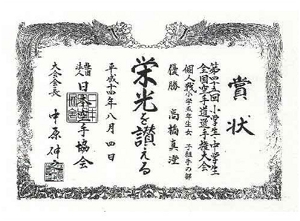 賞状
第四十五回小学生・中学生
全国空手道選手権大会
個人戦小学五年生女子組手の部
優勝 高橋真澄
栄光を讃える
平成十四年八月四日
社団法人 日本空手協会
大会会長 中原伸之